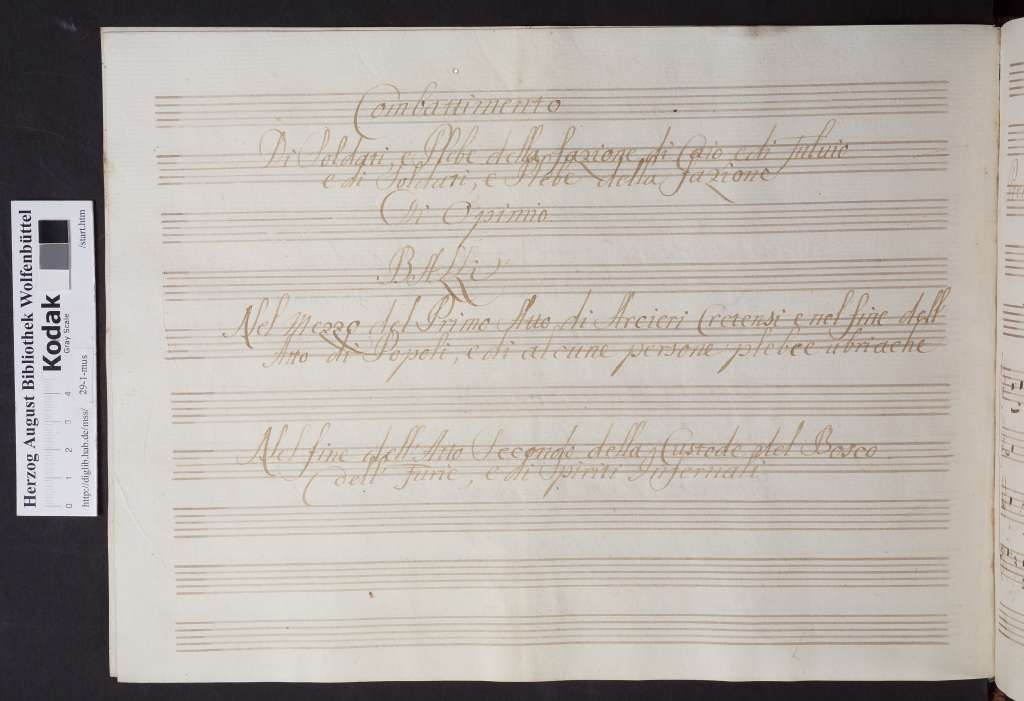 Combattimento
Di Soldati, e Plebe della fazione di Caio e di Fulvio
e di Soldati, e Plebe della fazione
Di Opimio
BALLi
Nel Mezzo del Primo Atto di Arcieri Cretensi e nel fine dell
Atto di Popoli, e di alcune persone plebee ubriache
Nel fine dell Atto Secondo della Custode del Bosco
dell Furie, e di Spiriti Infernali
Herzog August Bibliothek Wolfenbüttel
Kodak
Gray Scale
0 1 2 3 4
http://diglib.hab.de/mss/ 29-1-mus /start.htm